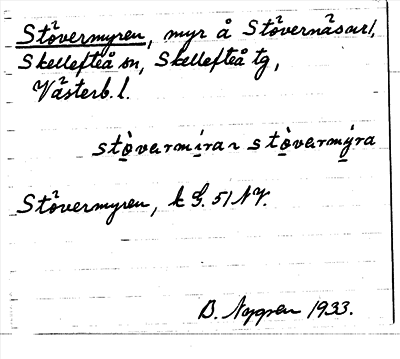 Stövermyren, myr å Stövernäsurl,
Skellefteå sn, Skellefteå tg,
Västerb. l.
stòvarmira ~ stòvarmýra
Stövermyren, k G. 51 NV.
B. Nygren 1933.